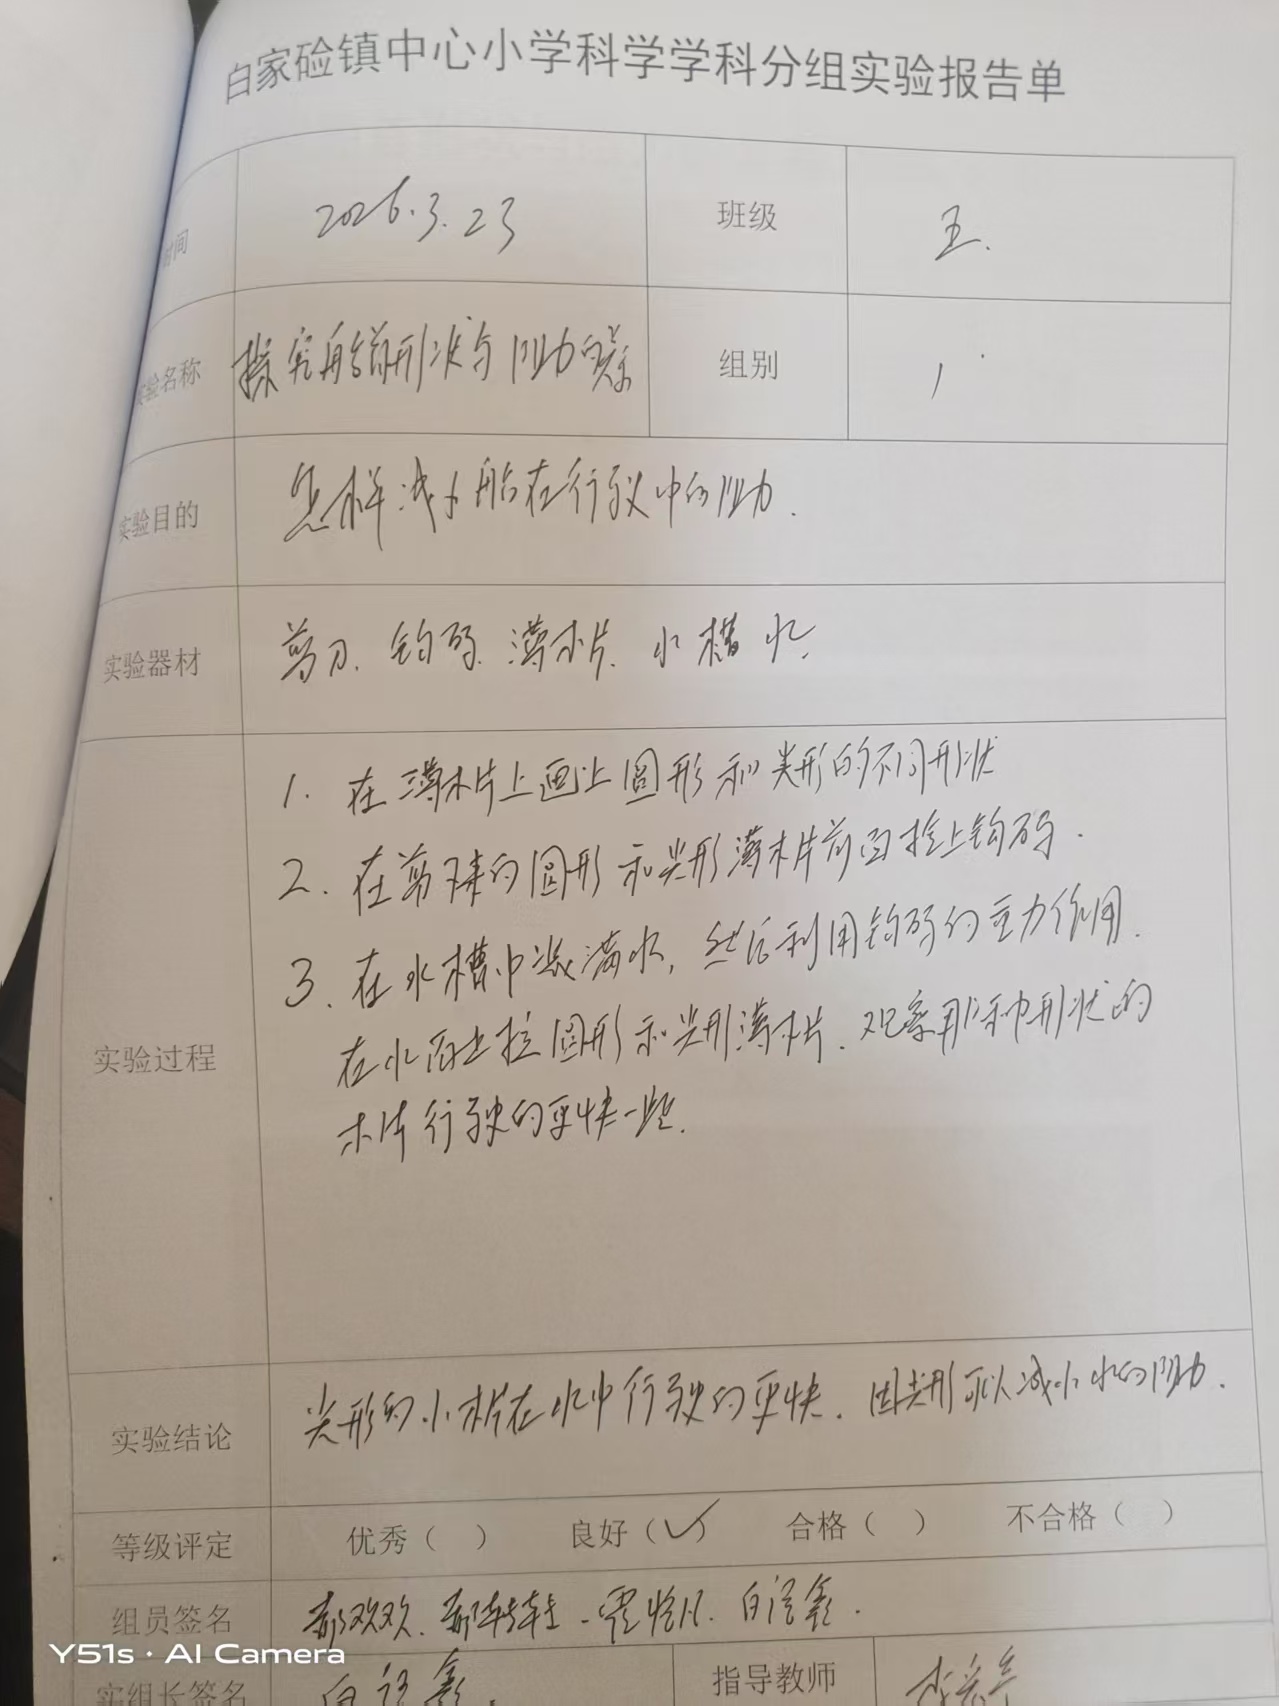 白家硷镇中心小学科学学科分组实验报告单
时间 2026.3.23 班级 五.
实验名称 探究船首形状与阻力的关系 组别 1
实验目的 怎样减小船在行驶中的阻力.
实验器材 剪刀、钩码、薄木片、水槽 水
1. 在薄木片上画上圆形和尖形的不同形状
2. 在剪下来的圆形和尖形薄木片前面拴上钩码.
3. 在水槽中装满水, 然后利用钩码的重力作用.
在水面上拉圆形和尖形薄木片. 观察那种形状的
实验过程
木片行驶的更快一些.
实验结论 尖形的小木片在水中行驶的更快. 因尖形可以减小水的阻力.
等级评定 优秀( ) 良好(✓) 合格( ) 不合格( )
组员签名 郝欢欢、
Y51s · AI Camera
实组长签名 指导教师